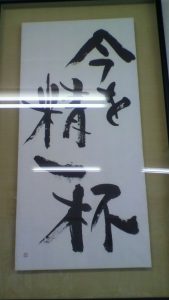 今を
精一
杯